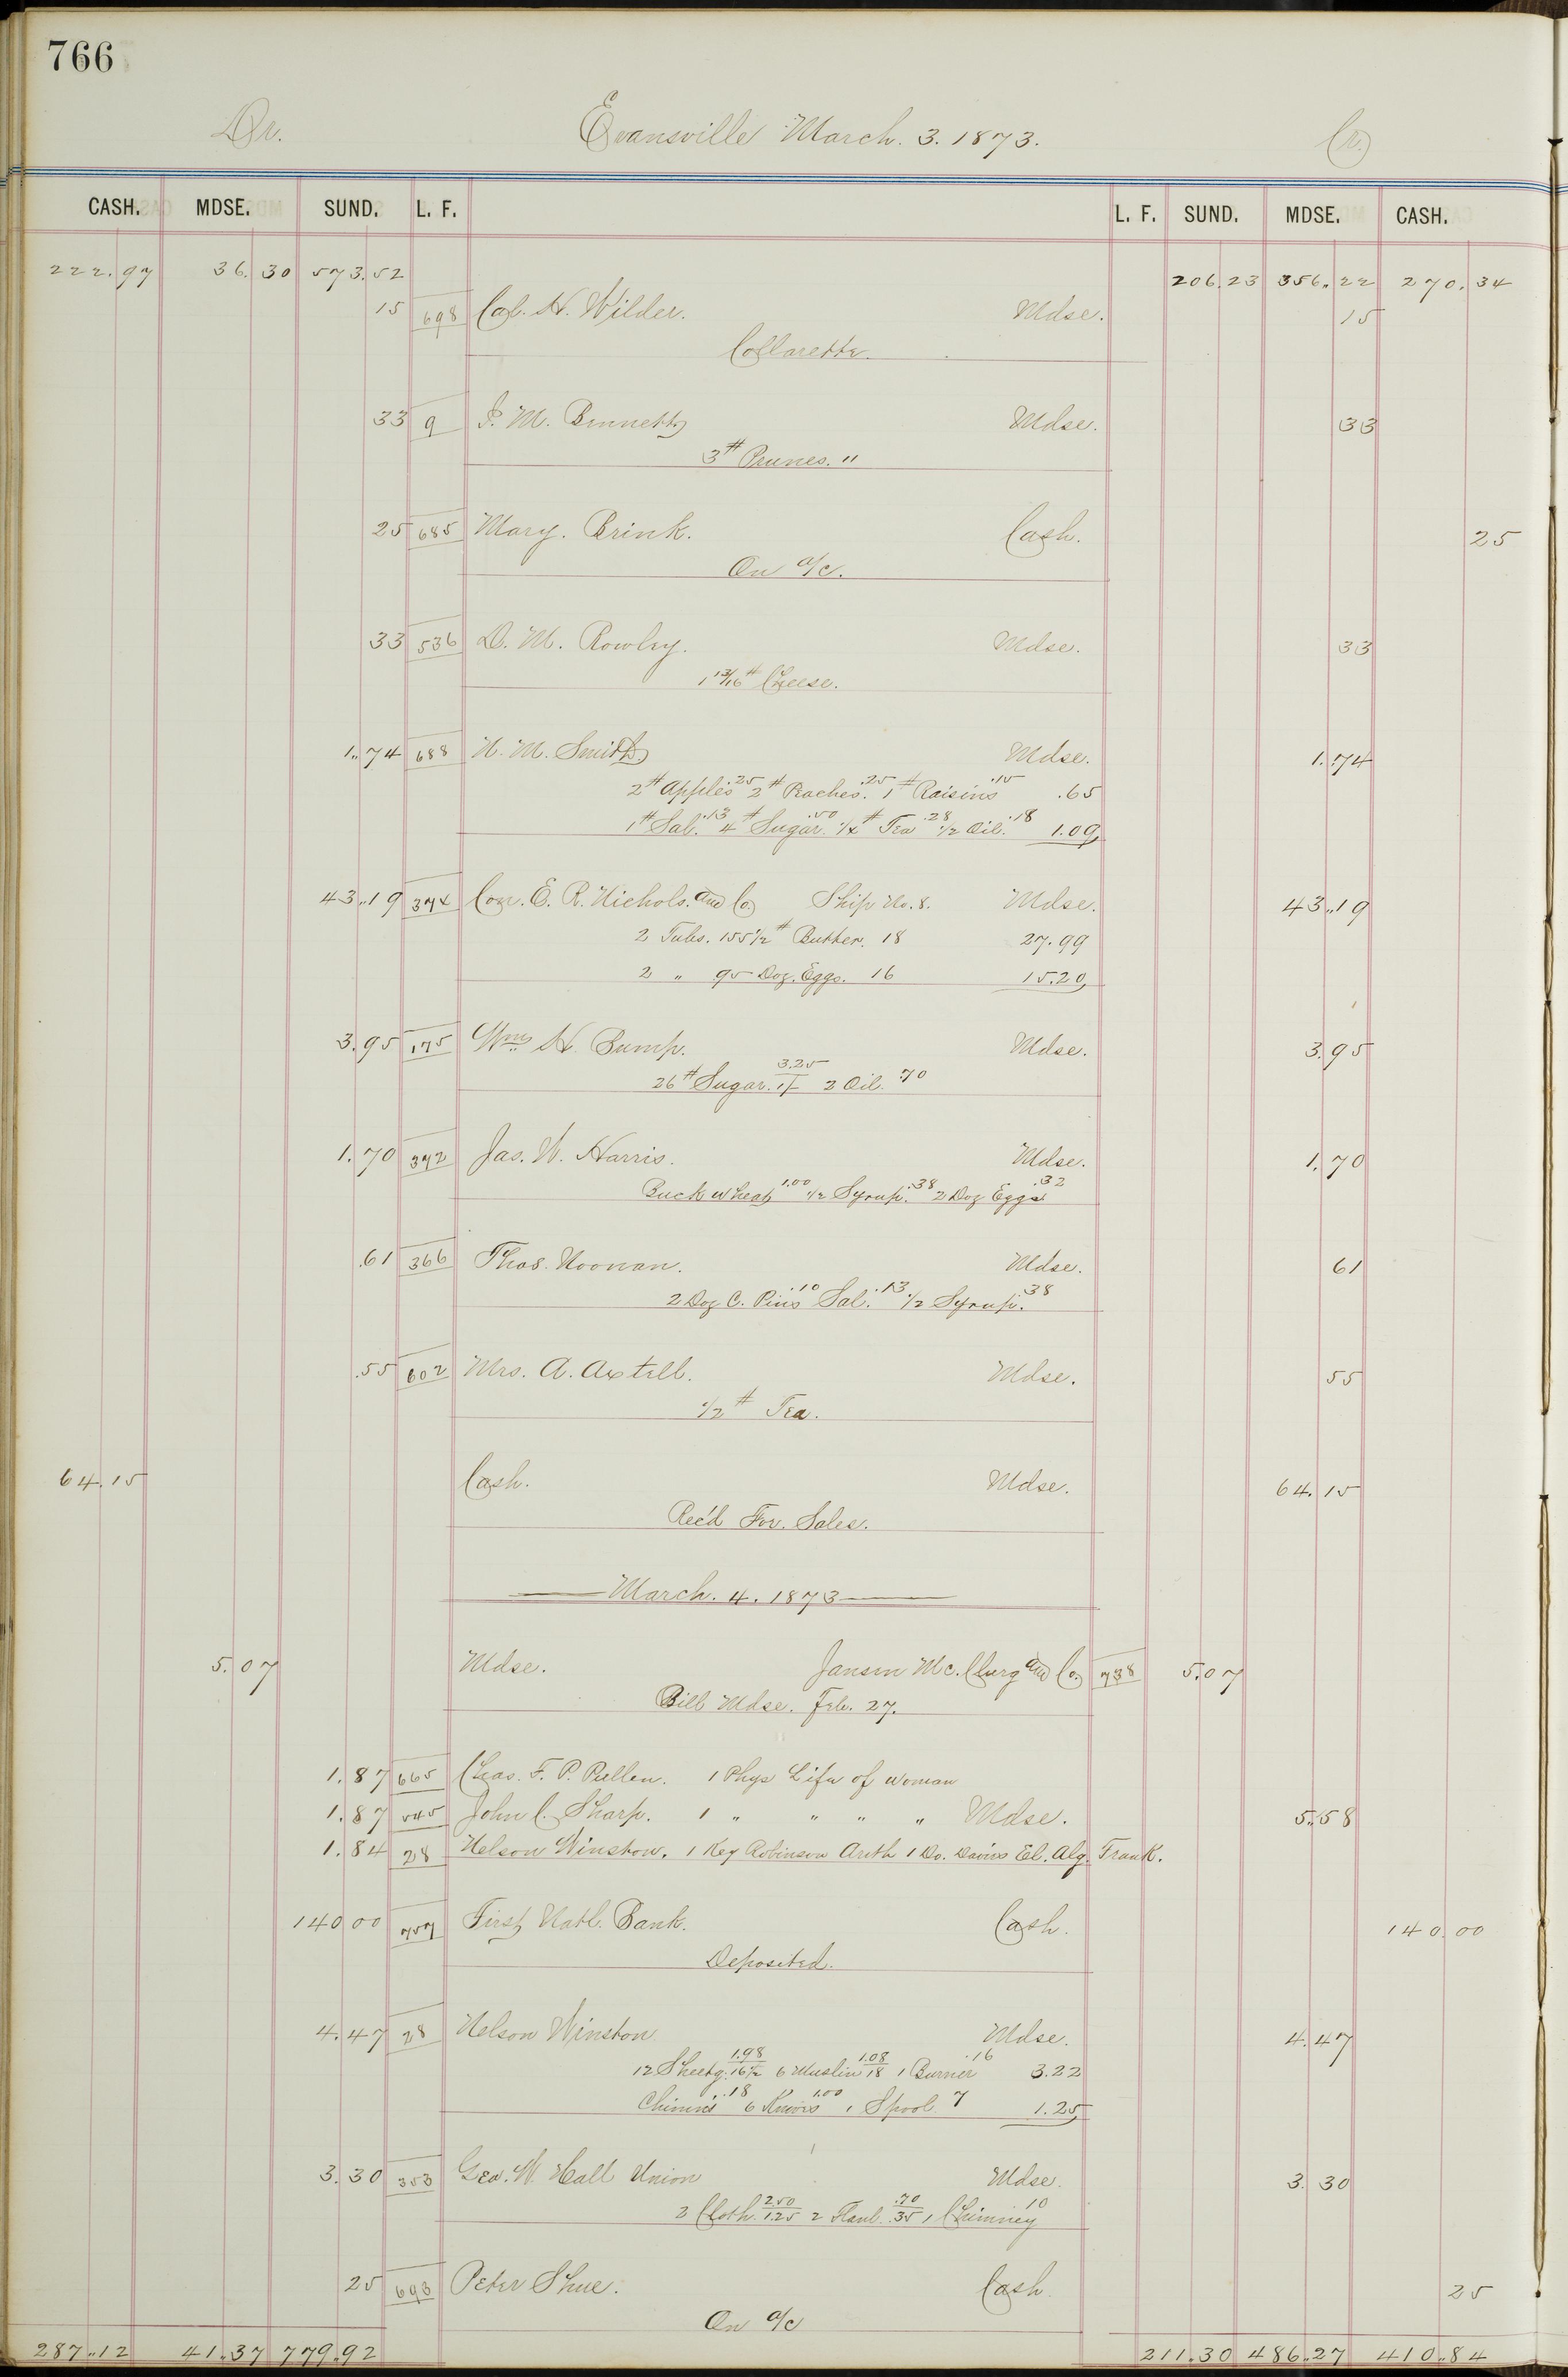 766
Dr. Evansville March. 3. 1873. Cr.
CASH. MDSE. SUND. L. F. L. F. SUND. MDSE. CASH.
222.97 36.30 573.52 206.23 356.22 270.34
15 698 Cal. H. Wilder. Mdse. 15
Collarette.
33 9 J. M. Bennett Mdse. 33
3# Prunes. "
25 685 Mary. Brink. Cash. 25
On a/c.
33 536 D. M. Rowley. Mdse. 33
1 13/16# Cheese.
1.74 688 N. M. Smith Mdse. 1.74
2# Apples .25 2# Peaches. .25 1# Raisins .15 .65
1# Sal. .13 4# Sugar .50 1/4# Tea .28 1/2 Oil. .18 1.09
43.19 374 Con. E. R. Nichols. and Co. Ship No. 8. Mdse. 43.19
2 Tubs. 155 1/2# Butter. 18 27.99
2 " 95 Doz. Eggs. 16 15.20
3.95 175 Wm. H. Bump. Mdse. 3.95
26# Sugar. 3.25 1/- 2 Oil. 70
1.70 372 Jas. W. Harris. Mdse. 1.70
Buck wheat 1.00 1/2 Syrup. .38 2 Doz Eggs .32
.61 366 Thos. Noonan. Mdse. 61
2 Doz C. Pins .10 Sal. .13 1/2 Syrup. .38
.55 602 Mrs. A. Axtell. Mdse. 55
1/2# Tea.
64.15 Cash. Mdse. 64.15
Rec'd For. Sales.
March. 4. 1873
5.07 Mdse. Jansen Mc. Clurg and Co. 738 5.07
Bill Mdse. Feb. 27.
1.87 665 Chas. F. P. Pullen. 1 Phys Life of woman
1.87 545 John C. Sharp. 1 " " " " Mdse. 5.58
1.84 28 Nelson Winston. 1 Key Robinson Arith 1 Do. Davis El. Alg. Frank.
140 00 757 First Natl. Bank. Cash. 140.00
Deposited.
4.47 28 Nelson Winston Mdse. 4.47
12 Sheetg. 1.98 16 1/2 6 Muslin 1.08 18 1 Burner .16 3.22
Chimn's .18 6 Knives 1.00 1 Spool 7 1.25
3.30 353 Geo. W. Hall Union Mdse. 3.30
2 Cloth 2.50 1.25 2 Flanl. .70 .35 1 Chimney 10
25 693 Peter Shue. Cash. 25
On a/c
287.12 41.37 779.92 211.30 486.27 410.84